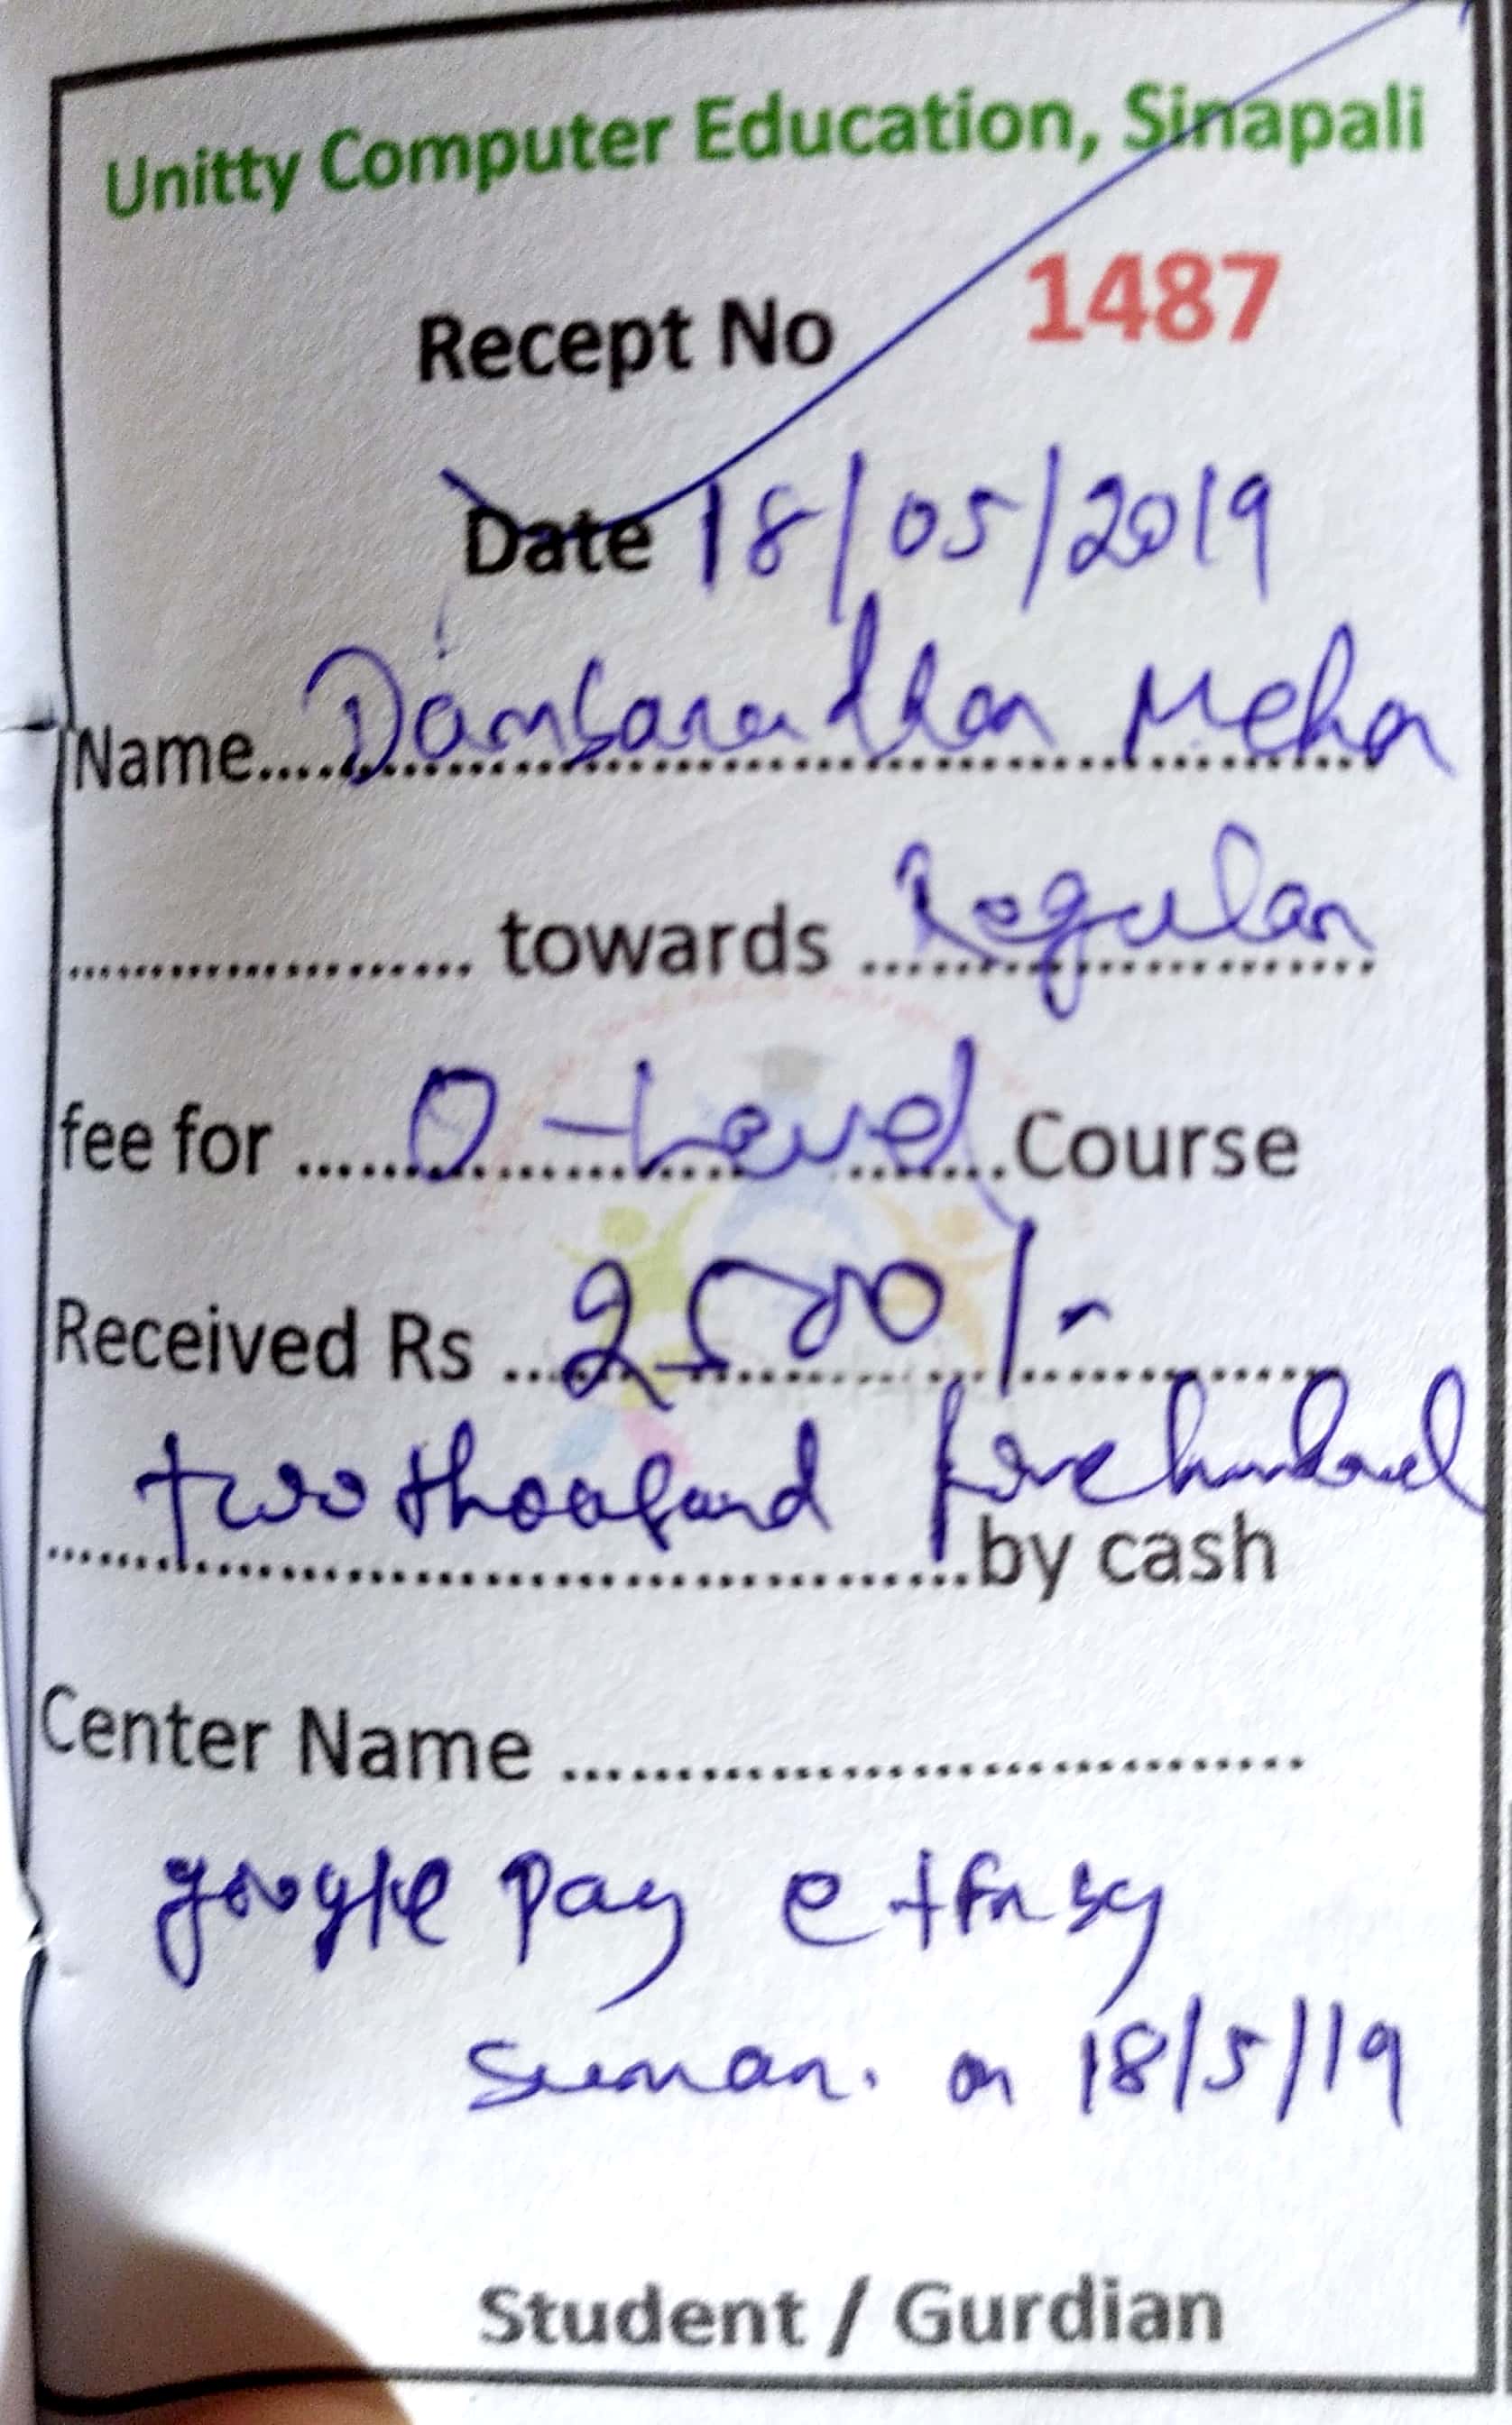 Unitty Computer Education, Sinapali
Recept No 1487
Date 18/05/2019
Name.....Dambarudhar Meher
.................... towards ...Regular
fee for .....O-Level.....Course
Received Rs ...2500/-
two thousand five hundred
by cash
Center Name ................................
google pay
suman. on 18/5/19
Student / Gurdian